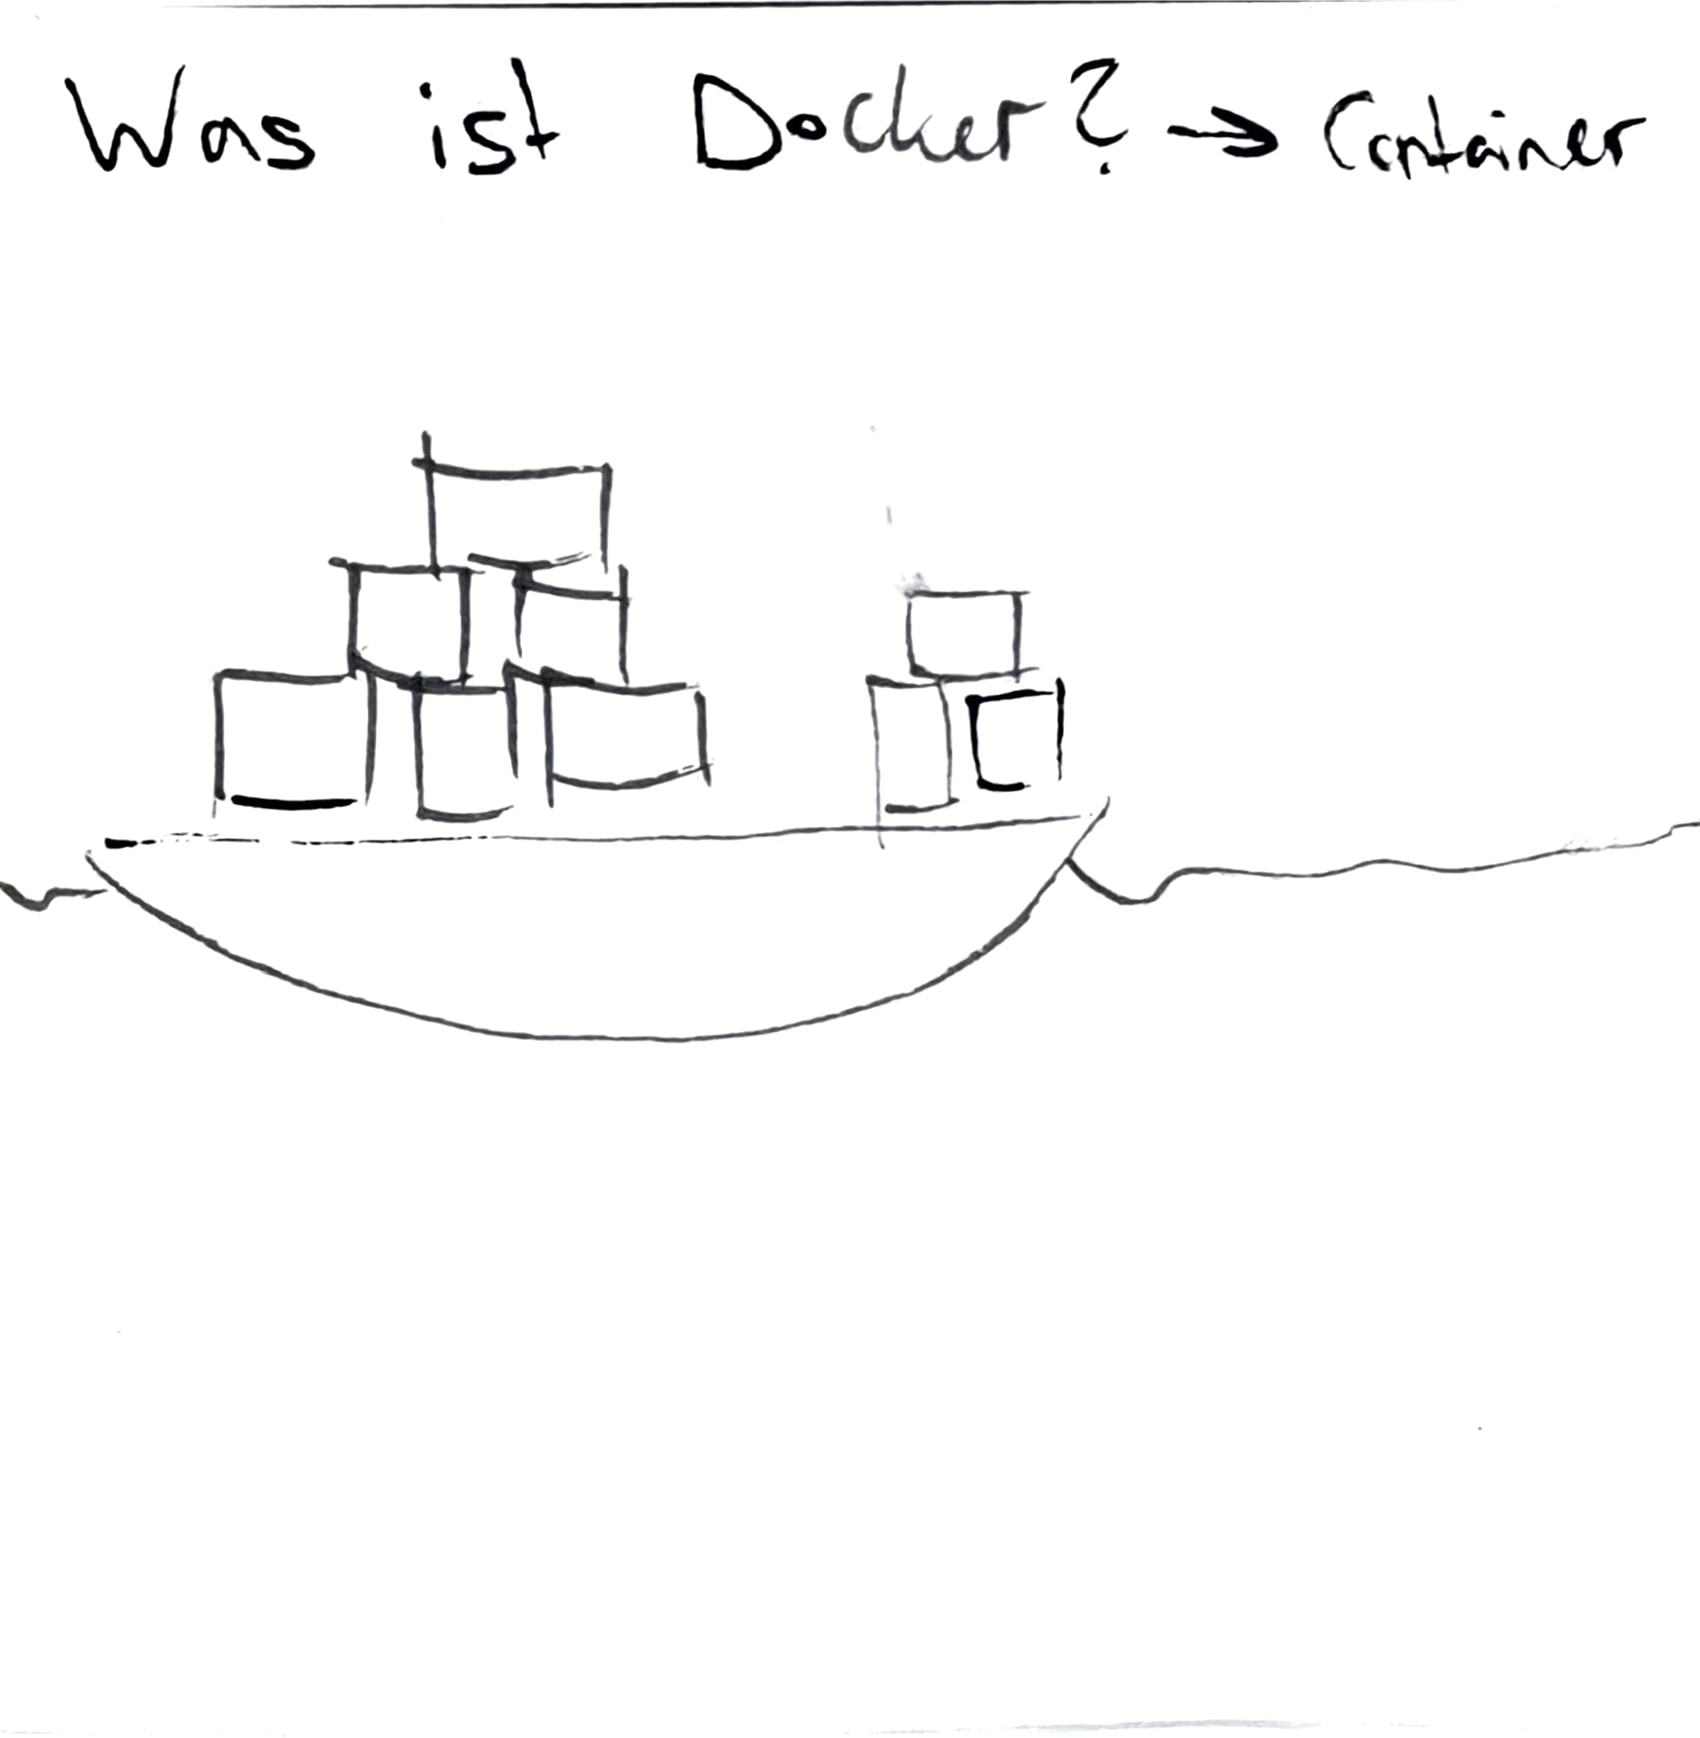 Was ist Docker? → Container